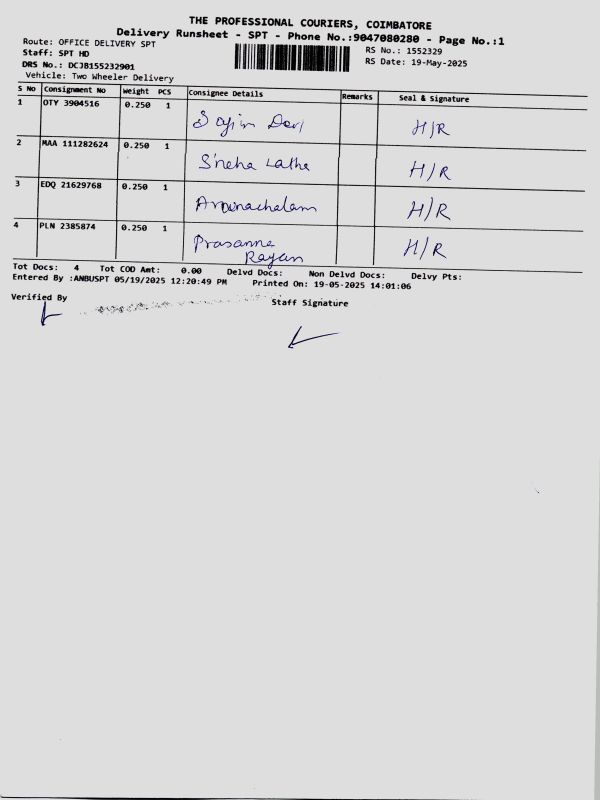 THE PROFESSIONAL COURIERS, COIMBATORE
Delivery Runsheet - SPT - Phone No.:9047080280 - Page No.:1
Route: OFFICE DELIVERY SPT
RS No.: 1552329
Staff: SPT HD
RS Date: 19-May-2025
DRS No.: DCJB155232901
Vehicle: Two Wheeler Delivery
S No Consignment No Weight PCS Consignee Details Remarks Seal & Signature
1 OTY 3904516 0.250 1 Devi H/R
2 MAA 111282624 0.250 1 Sneha Latha H/R
3 EDQ 21629768 0.250 1 Arunachalam H/R
4 PLN 2385874 0.250 1 Prasanna H/R
Rajan
Tot Docs: 4 Tot COD Amt: 0.00 Delvd Docs: Non Delvd Docs: Delvy Pts:
Entered By :ANBUSPT 05/19/2025 12:20:49 PM Printed On: 19-05-2025 14:01:06
Verified By
Staff Signature